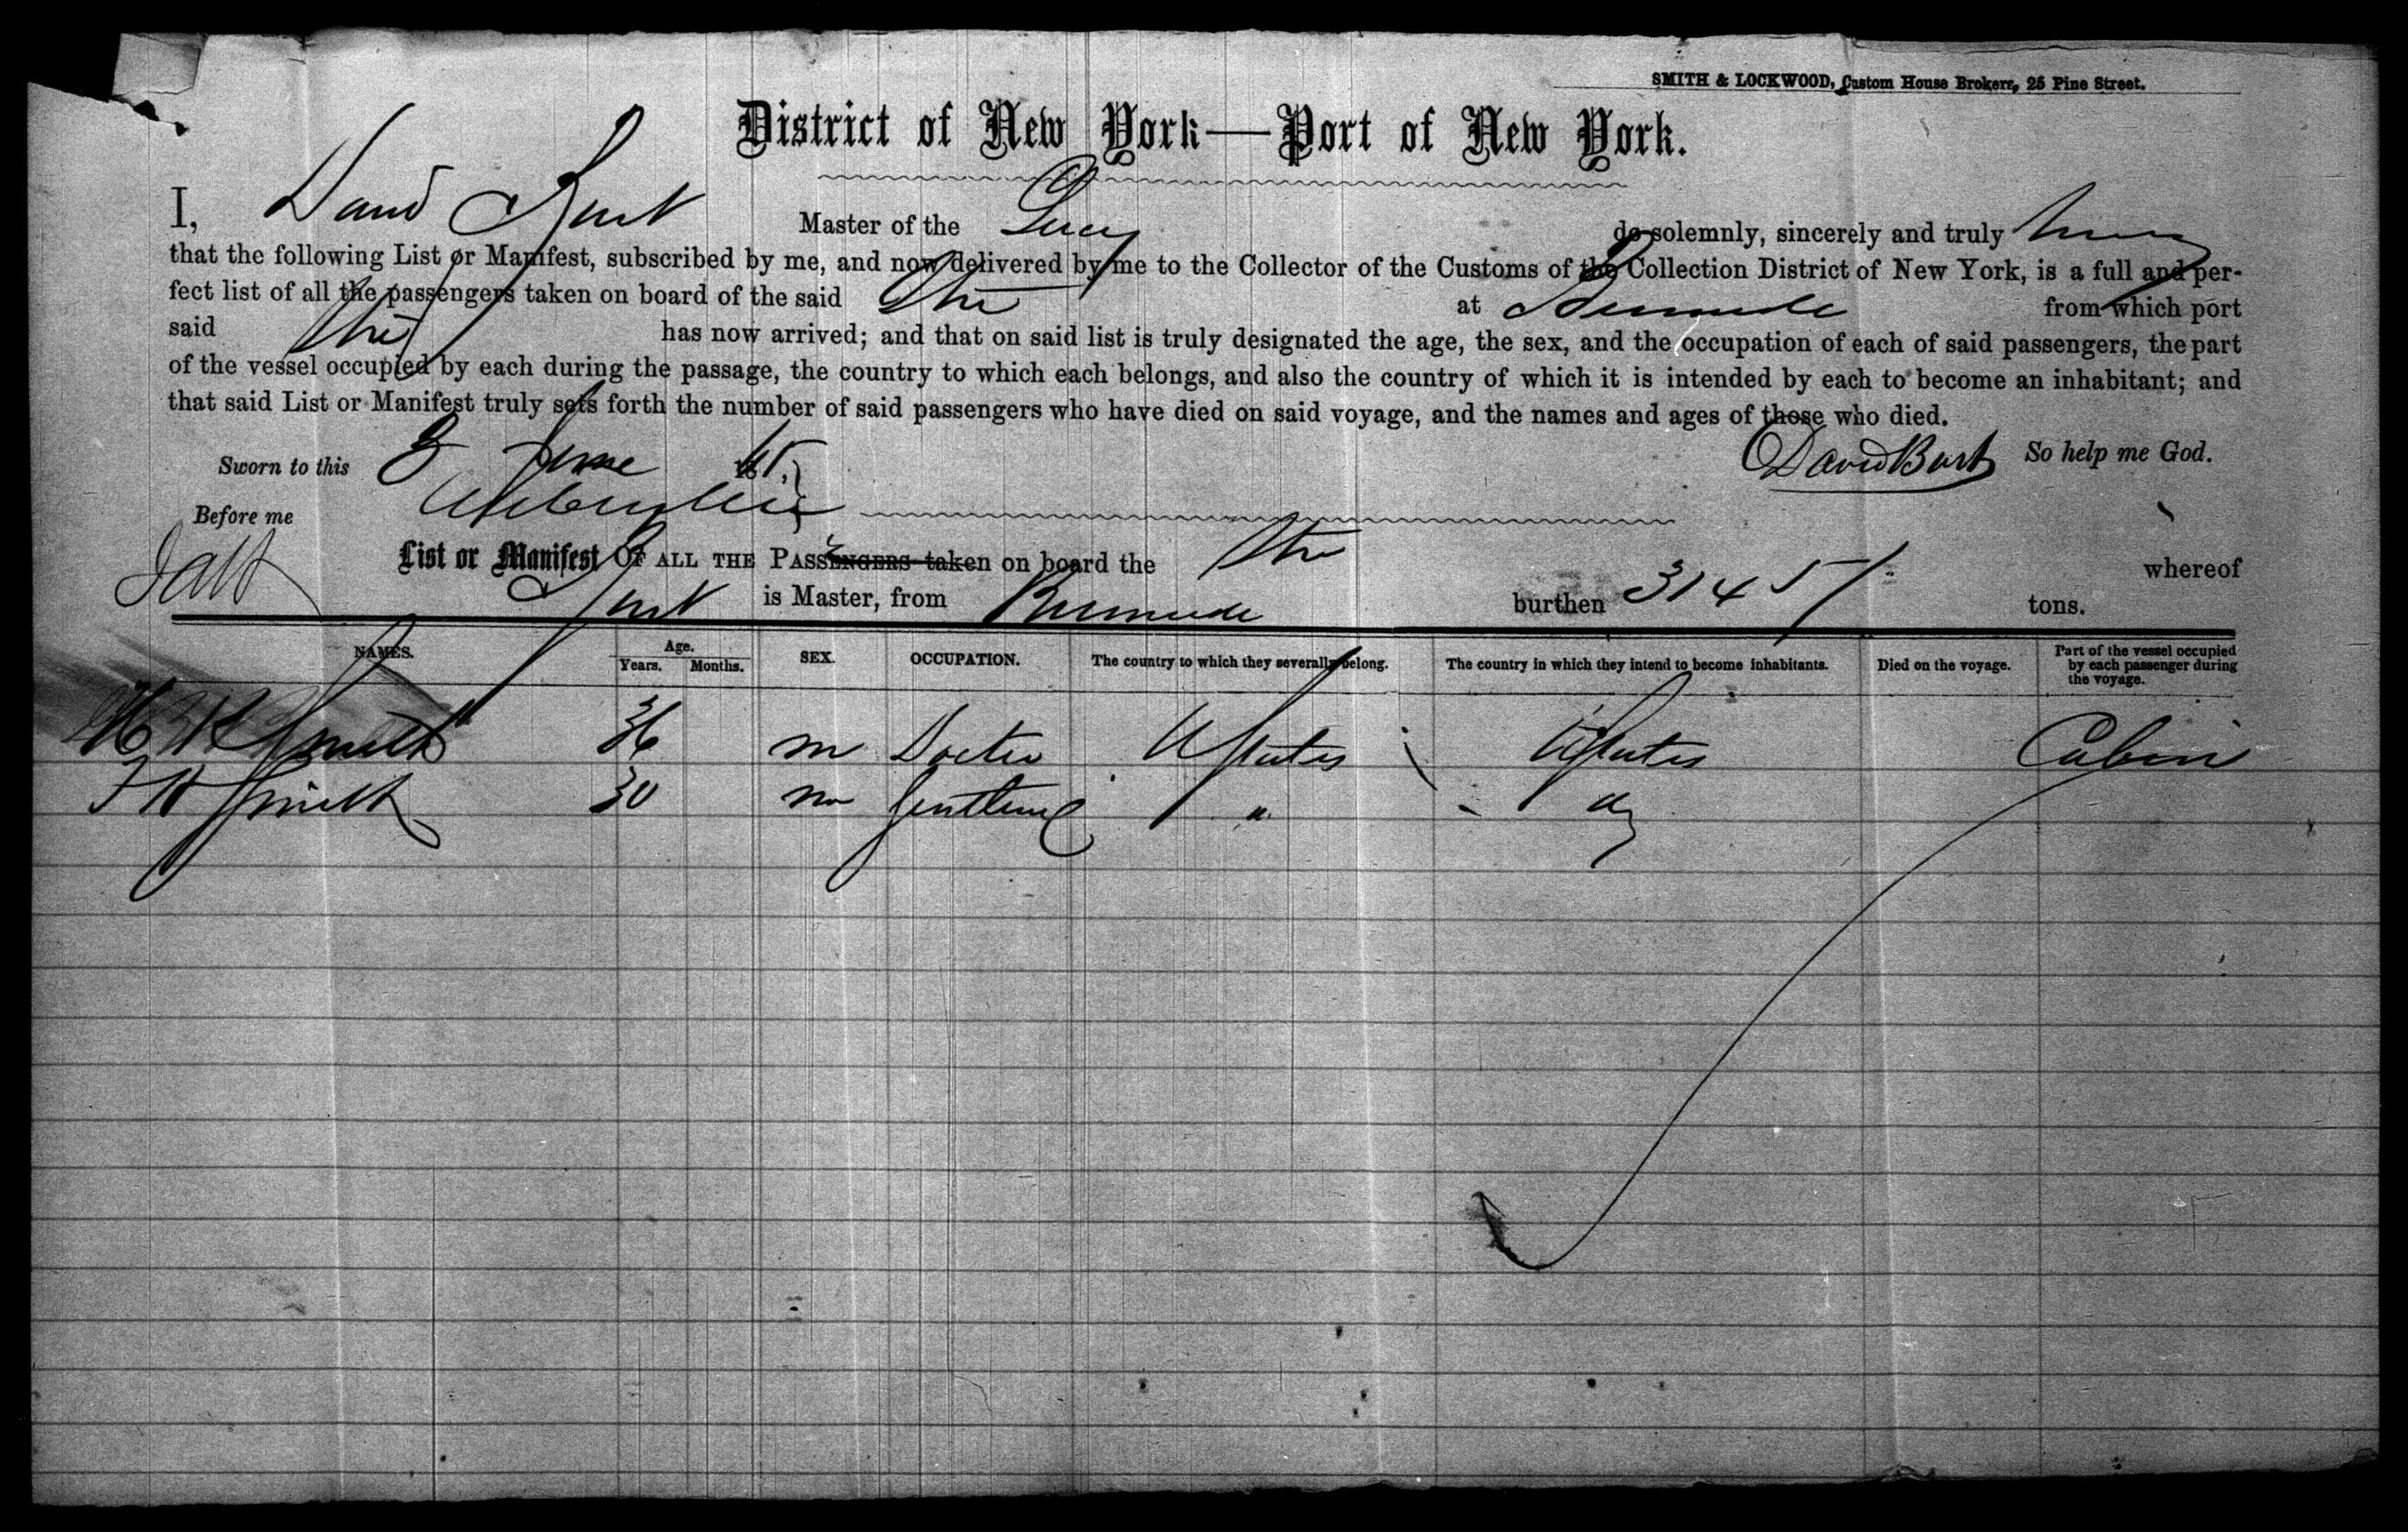 SMITH & LOCKWOOD, Custom House Brokers, 25 Pine Street.
District of New York—Port of New York.
I, David Burt Master of the Lucy do solemnly, sincerely and truly
that the following List or Manifest, subscribed by me, and now delivered by me to the Collector of the Customs of the Collection District of New York, is a full and per-
fect list of all the passengers taken on board of the said at Bermuda from which port
said has now arrived; and that on said list is truly designated the age, the sex, and the occupation of each of said passengers, the part
of the vessel occupied by each during the passage, the country to which each belongs, and also the country of which it is intended by each to become an inhabitant; and
that said List or Manifest truly sets forth the number of said passengers who have died on said voyage, and the names and ages of those who died.
Sworn to this 3 June 65 David Burt So help me God.
Before me
List or Manifest OF ALL THE PASSENGERS taken on board the whereof
Burt is Master, from Bermuda burthen 314 51 tons.
NAMES. Age. Years. Months. SEX. OCCUPATION. The country to which they severally belong. The country in which they intend to become inhabitants. Died on the voyage. Part of the vessel occupied by each passenger during the voyage.
H K Smith 36 m Doctor U States U States Cabin
F H Smith 30 m " do